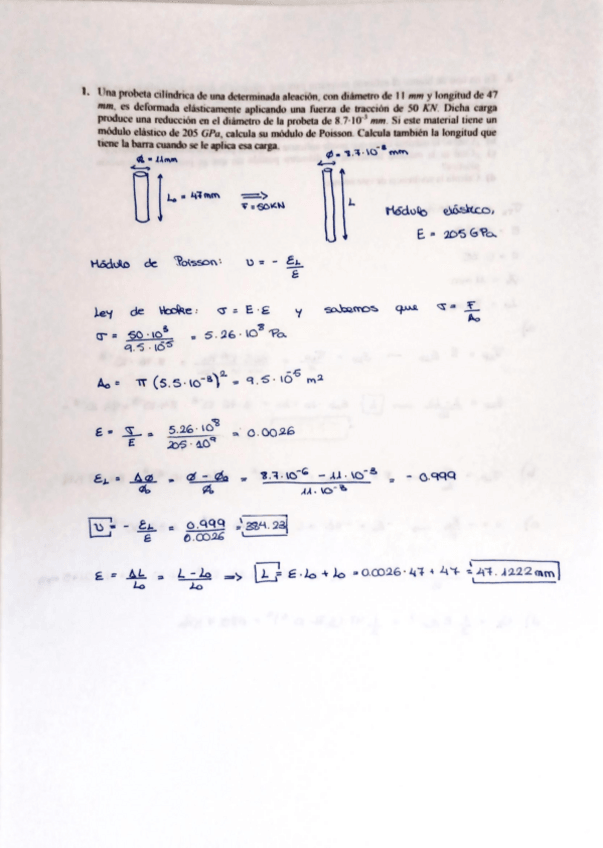 1. Una probeta cilíndrica de una determinada aleación, con diámetro de 11 mm y longitud de 47
mm, es deformada elásticamente aplicando una fuerza de tracción de 50 KN. Dicha carga
produce una reducción en el diámetro de la probeta de 8.7·10⁻³ mm. Si este material tiene un
módulo elástico de 205 GPa, calcula su módulo de Poisson. Calcula también la longitud que
tiene la barra cuando se le aplica esa carga.
ϕ₀ = 11mm
L₀ = 47mm
⇒
F = 50KN
ϕ = 8.7·10⁻³ mm
L
Módulo elástico,
E = 205 GPa
Módulo de Poisson: υ = - εL/ε
Ley de Hooke: σ = E·ε y sabemos que σ = F/A₀
σ = 50·10³/9.5·10⁻⁵ = 5.26·10⁸ Pa
A₀ = π(5.5·10⁻³)² = 9.5·10⁻⁵ m²
ε = σ/E = 5.26·10⁸/205·10⁹ = 0.0026
εL = Δϕ/ϕ₀ = ϕ - ϕ₀/ϕ₀ = 8.7·10⁻⁶ - 11·10⁻³/11·10⁻³ = - 0.999
υ = - εL/ε = 0.999/0.0026 = 384.23
ε = ΔL/L₀ = L - L₀/L₀ ⇒ L = ε·L₀ + L₀ = 0.0026·47 + 47 = 47.1222 mm